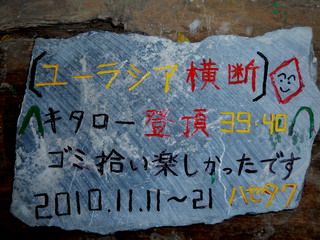 [ユーラシア横断]
キタロー登頂 39.40
ゴミ拾い楽しかったです
2010.11.11～21 ハセタク